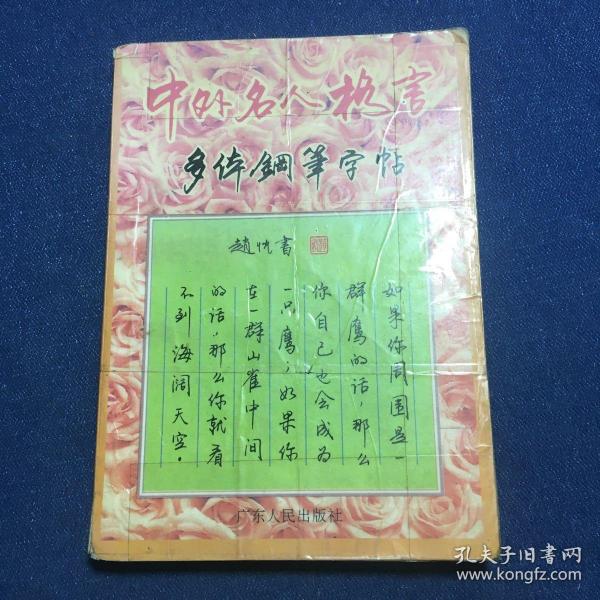 中外名人格言
多体鋼筆字帖
趙忱書
如果你周围是一
群鹰的话,那么
你自己也会成为
一只鹰;如果你
在一群山雀中间
的话,那么你就看
不到海阔天空。
广东人民出版社
孔夫子旧书网
www.kongfz.com